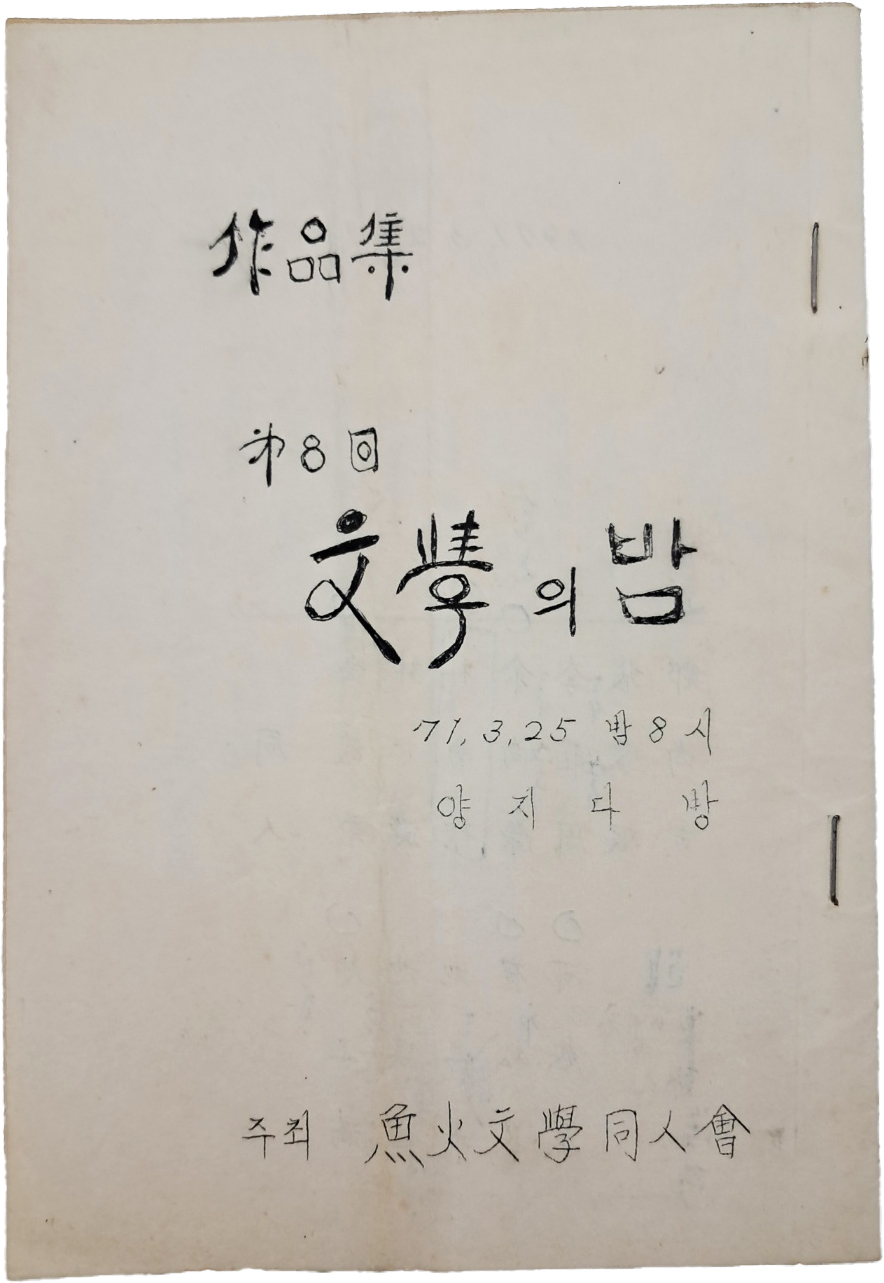 作品集
第8回
文學의 밤
71.3.25 밤 8시
양지다방
주최 魚火文學同人會